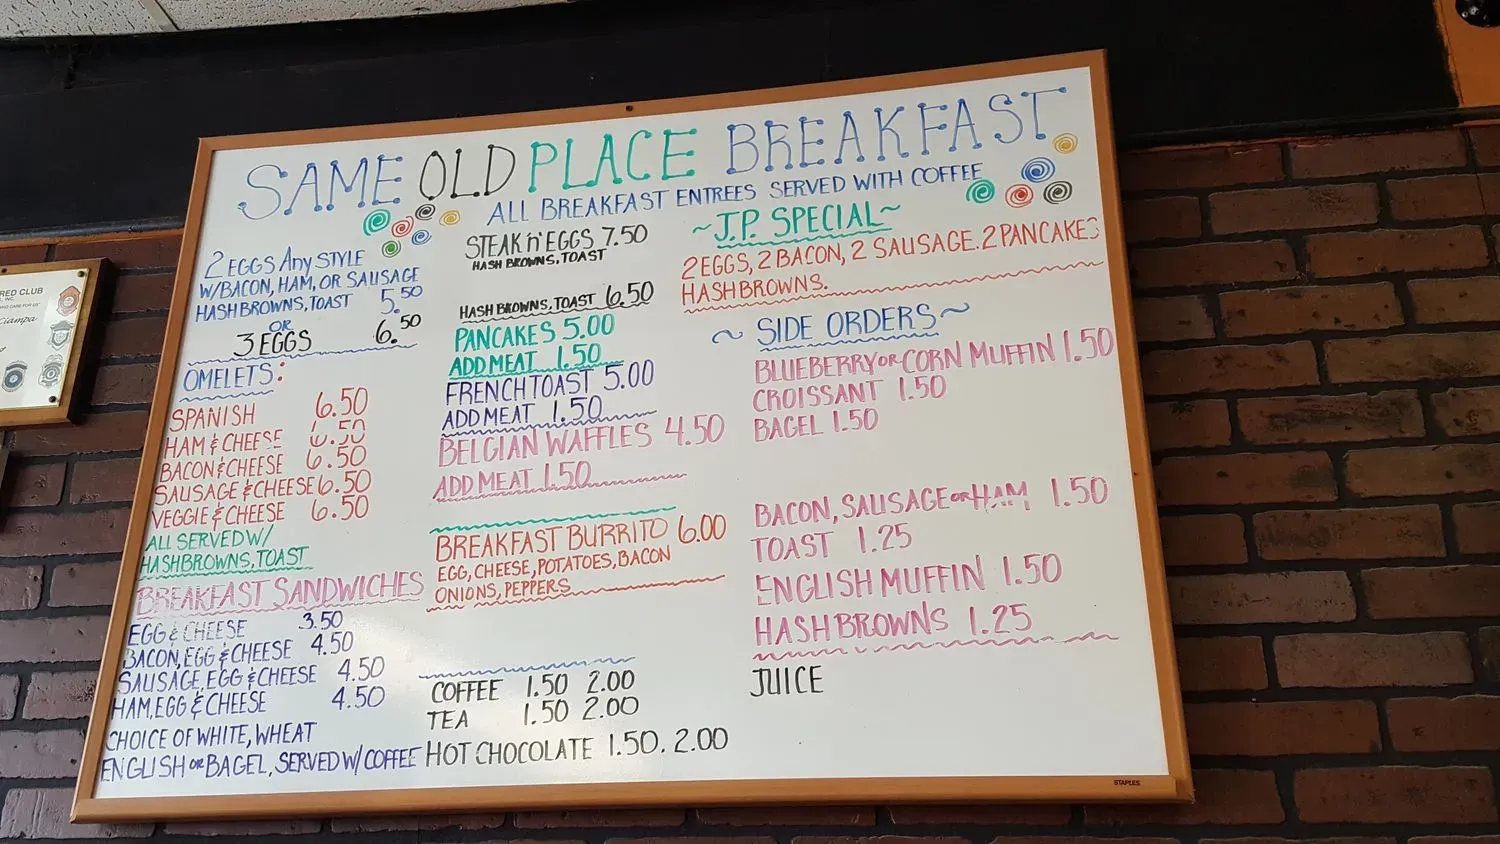 SAME OLD PLACE BREAKFAST
ALL BREAKFAST ENTREES SERVED WITH COFFEE
2 EGGS ANY STYLE
W/BACON, HAM, OR SAUSAGE
HASHBROWNS, TOAST 5.50
OR
3 EGGS 6.50
OMELETS:
SPANISH 6.50
HAM & CHEESE 6.50
BACON & CHEESE 6.50
SAUSAGE & CHEESE 6.50
VEGGIE & CHEESE 6.50
ALL SERVED W/
HASHBROWNS, TOAST
BREAKFAST SANDWICHES
EGG & CHEESE 3.50
BACON, EGG & CHEESE 4.50
SAUSAGE, EGG & CHEESE 4.50
HAM, EGG & CHEESE 4.50
CHOICE OF WHITE, WHEAT
ENGLISH OR BAGEL, SERVED W/ COFFEE
STEAK 'n' EGGS 7.50
HASH BROWNS, TOAST
HASH BROWNS, TOAST 6.50
PANCAKES 5.00
ADD MEAT 1.50
FRENCH TOAST 5.00
ADD MEAT 1.50
BELGIAN WAFFLES 4.50
ADD MEAT 1.50
BREAKFAST BURRITO 6.00
EGG, CHEESE, POTATOES, BACON
ONIONS, PEPPERS
COFFEE 1.50 2.00
TEA 1.50 2.00
HOT CHOCOLATE 1.50. 2.00
~J.P. SPECIAL~
2 EGGS, 2 BACON, 2 SAUSAGE. 2 PANCAKES
HASHBROWNS.
~ SIDE ORDERS ~
BLUEBERRY OR CORN MUFFIN 1.50
CROISSANT 1.50
BAGEL 1.50
BACON, SAUSAGE OR HAM 1.50
TOAST 1.25
ENGLISH MUFFIN 1.50
HASHBROWNS 1.25
JUICE
STAPLES
RED CLUB
Ciampa